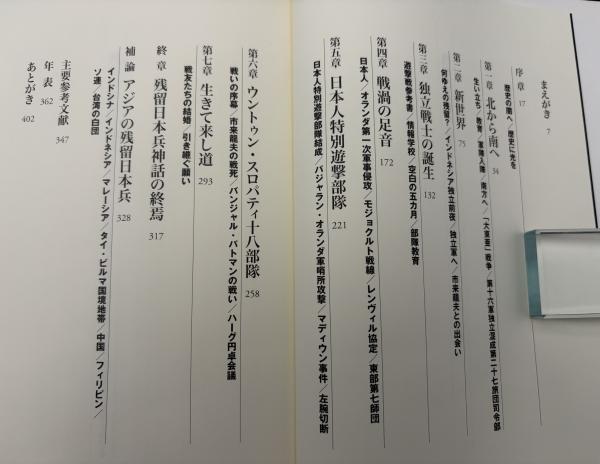 まえがき 7
序章 17
歴史の闇へ／歴史に光を
第一章 北から南へ 34
生い立ち／教育／軍隊入隊／南方へ／「大東亜」戦争／第十六軍独立混成第二十七旅団司令部
第二章 新世界 75
何ゆえの残留？／インドネシア独立前夜／独立軍へ／市来龍夫との出会い
第三章 独立戦士の誕生 132
遊撃戦参考書／情報学校／空白の五カ月／部隊教育
第四章 戦渦の足音 172
日本人／オランダ第一次軍事侵攻／モジョクルト戦線／レンヴィル協定／東部第七師団
第五章 日本人特別遊撃部隊 221
日本人特別遊撃部隊結成／パジャラン・オランダ軍哨所攻撃／マディウン事件／左腕切断
第六章 ウントゥン・スロパティ十八部隊 258
戦いの序幕／市来龍夫の戦死／バンジャル・パトマンの戦い／ハーグ円卓会議
第七章 生きて来し道 293
戦友たちの結婚／引き継ぐ願い
終章 残留日本兵神話の終焉 317
補論 アジアの残留日本兵 328
インドシナ／インドネシア／マレーシア／タイ・ビルマ国境地帯／中国／フィリピン／
ソ連／台湾の白団
主要参考文献 347
年表 362
あとがき 402